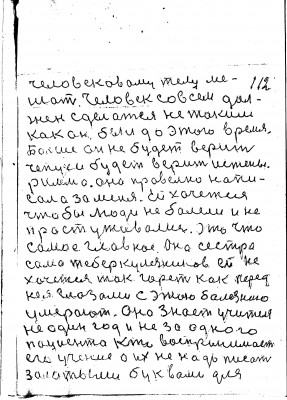 человековому телу ме- 112
шат. Человек совсем дол-
жен сделатся не таким
как он. были до этого время.
Больше он не будет верит
чепухи будет верит истены.
она правелно напи-
сала за меня. Ей хочется
чтобы люди не балели и не
прастужвалис. Это что
самое главное. Она сестра
сама теберкулезников ей не
хочется так гарет как перед
ней глазами с этою балезнию
умерают. Она знает учится
не один год и не за одного
пациента кто воспринимает
его учение о их не надь писат
залатыми буквами для